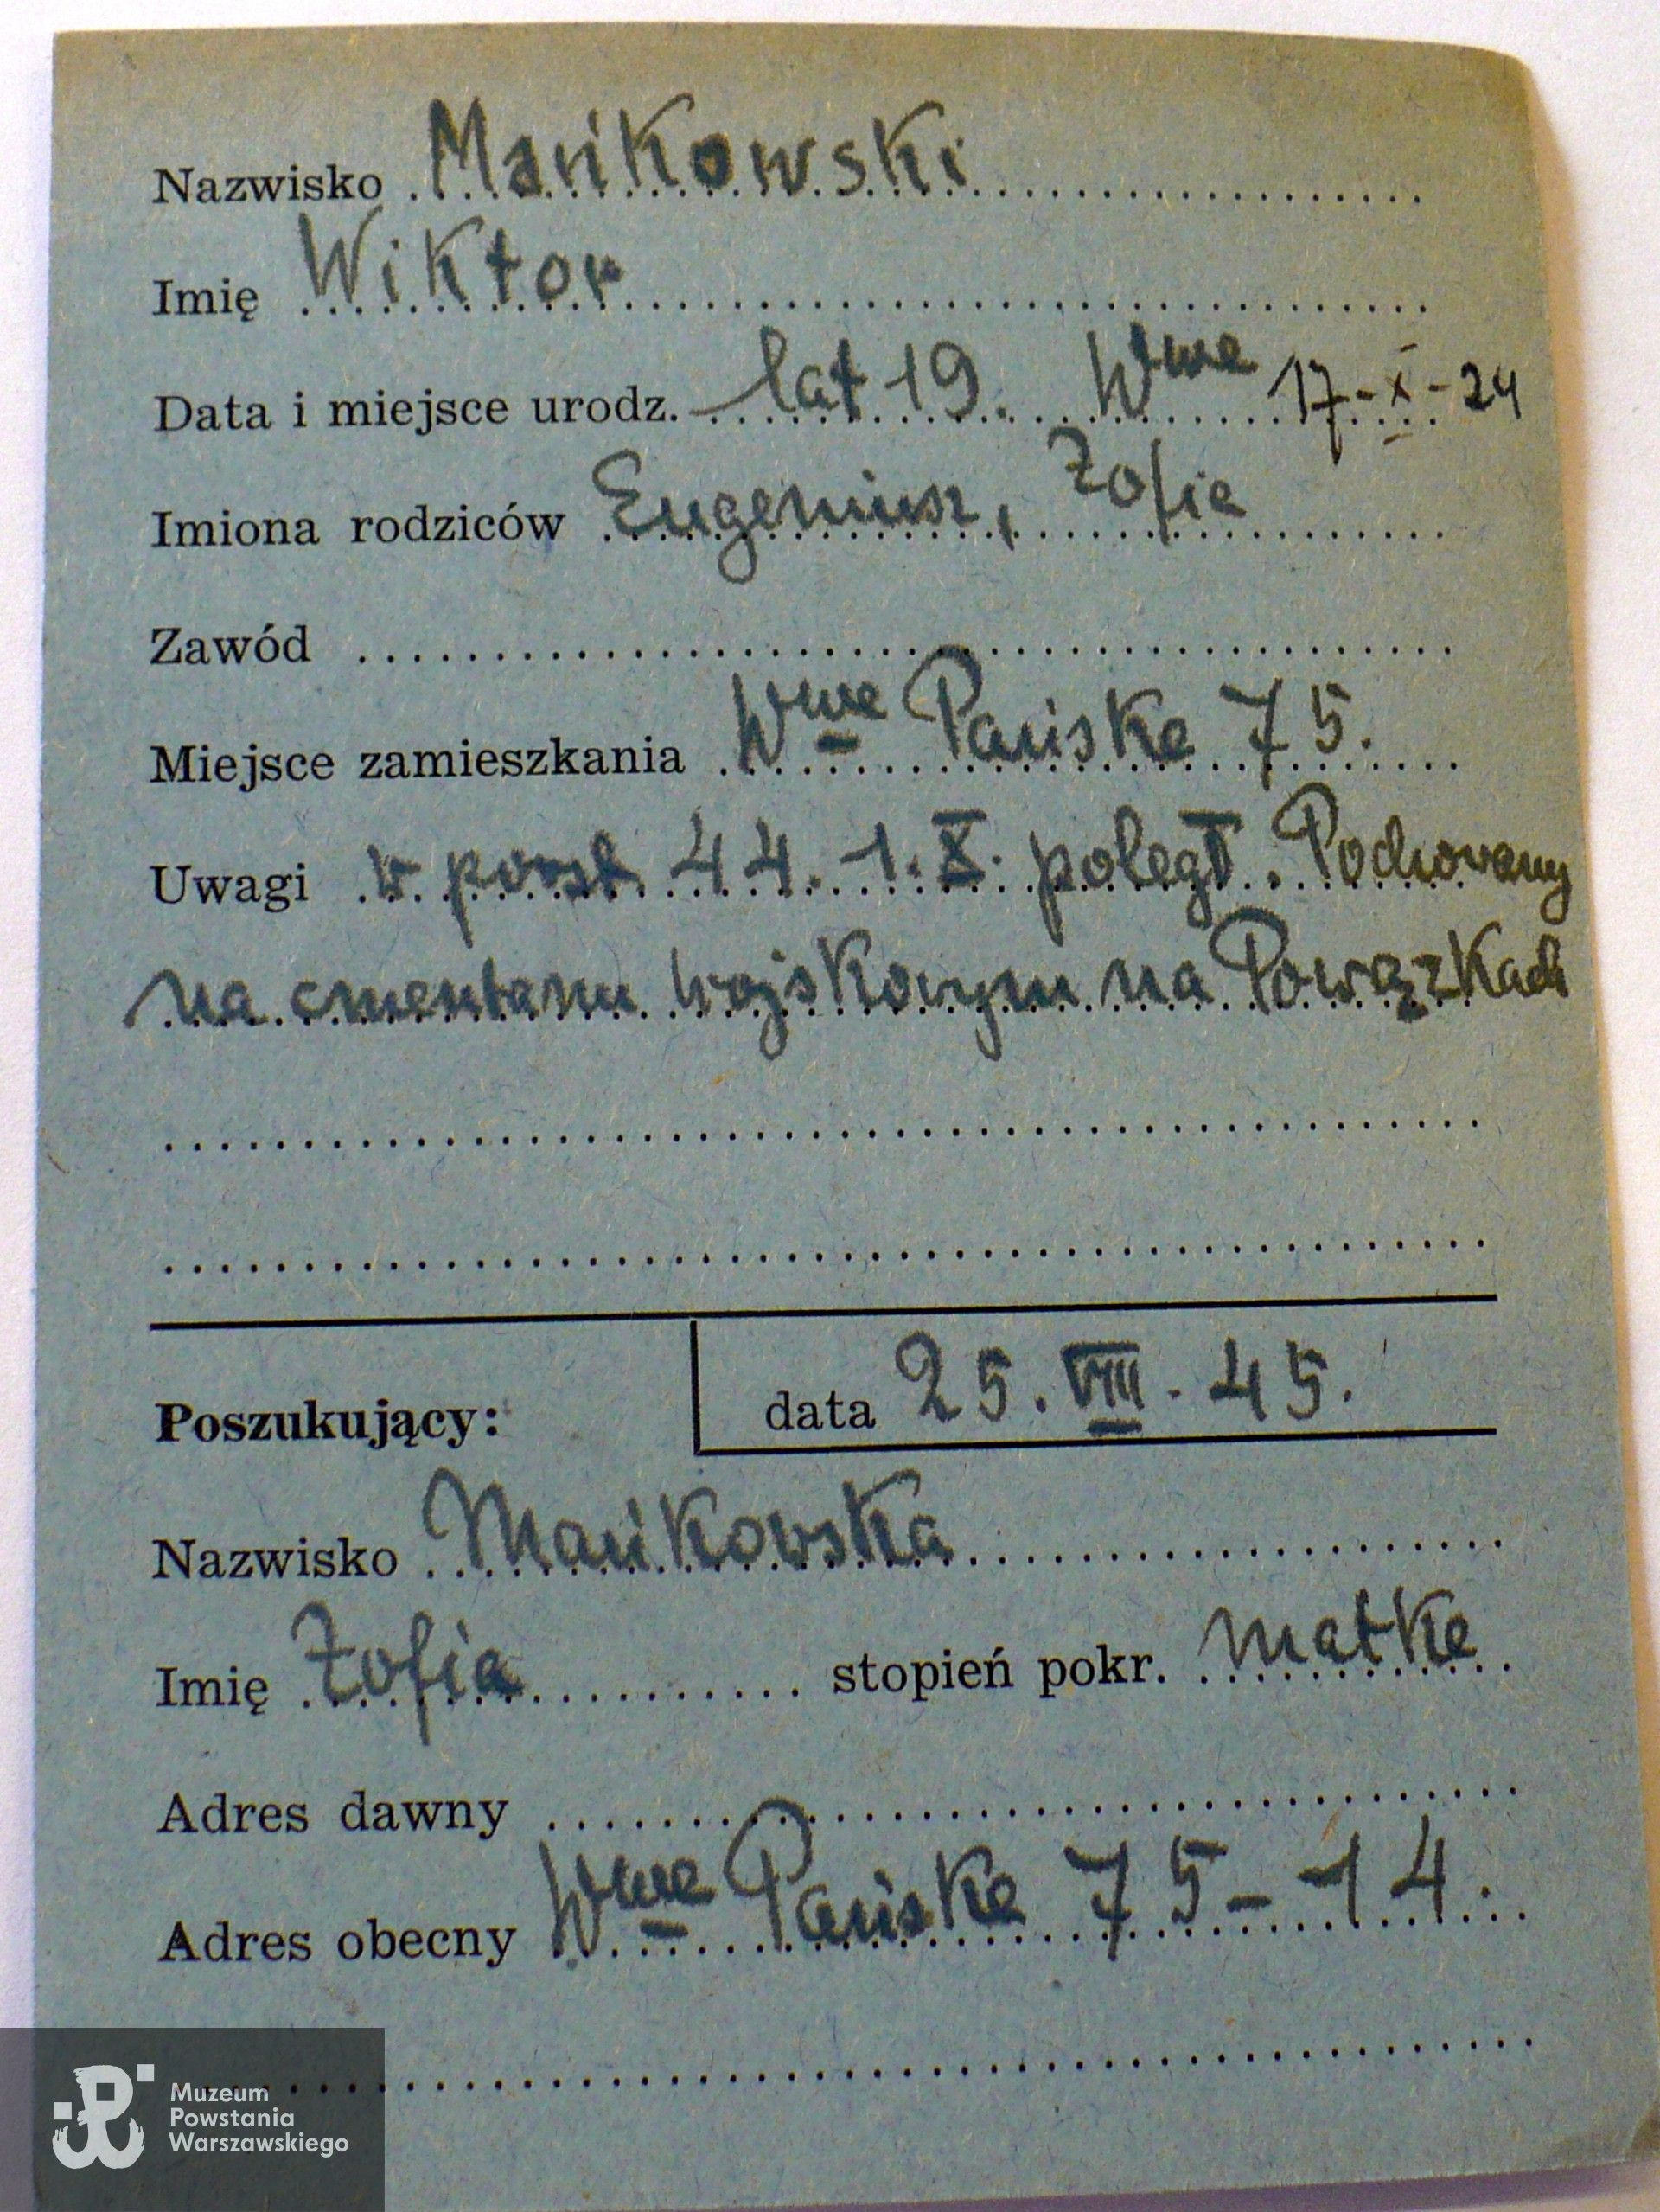 Nazwisko Mańkowski
Imię Wiktor
Data i miejsce urodz. lat 19. Wwa 17-X-24
Imiona rodziców Eugeniusz, Zofia
Zawód
Miejsce zamieszkania Wwa Pańska 75.
Uwagi w powst. 44. 1.X. poległ. Pochowany
na cmentarzu wojskowym na Powązkach
Poszukujący: data 25.VIII.45.
Nazwisko Mańkowska
Imię Zofia stopień pokr. matka
Adres dawny
Adres obecny Wwa Pańska 75-14.
Muzeum
Powstania
Warszawskiego